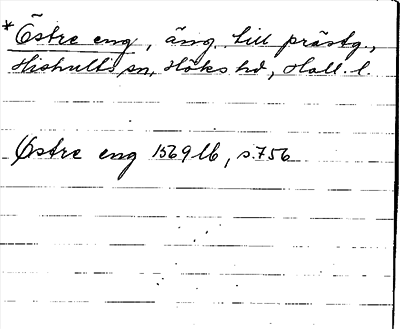 *Östre eng, äng till prästg.,
Hishults sn, Höks hd, Hall. l.
Östre eng 1569 lb, s. 756